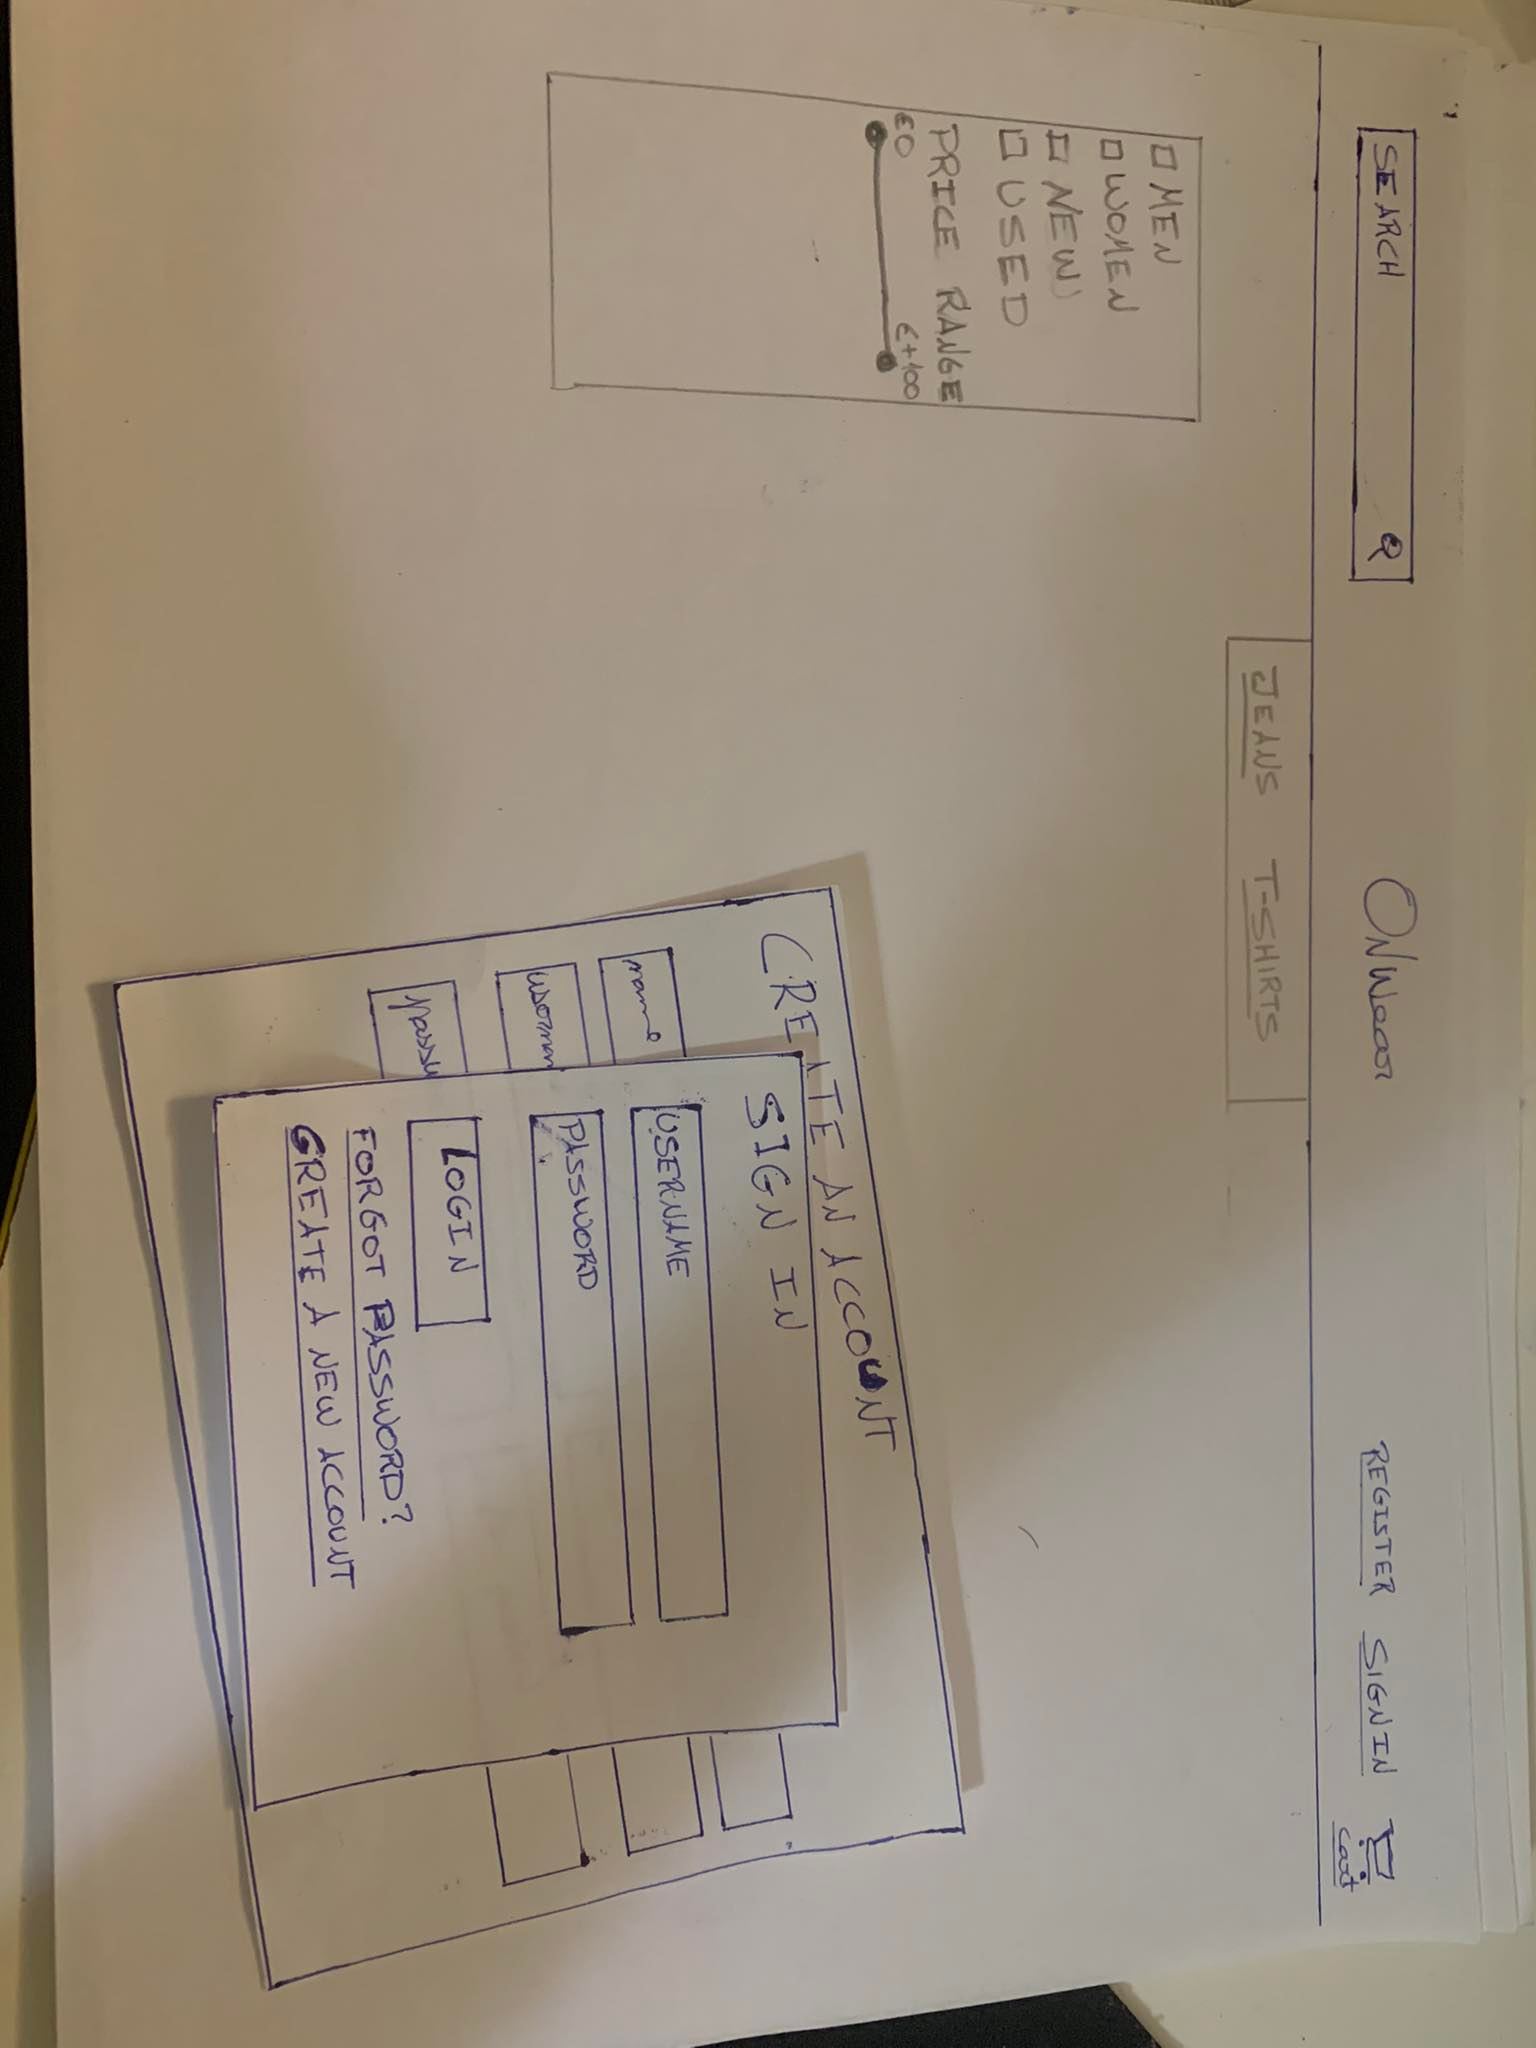 SEARCH
ONWear
REGISTER SIGN IN
cart
JEANS T-SHIRTS
MEN
WOMEN
NEW
USED
PRICE RANGE
€0 €+100
CREATE AN ACCOUNT
name
usernam
passw
SIGN IN
USERNAME
PASSWORD
LOGIN
FORGOT PASSWORD?
CREATE A NEW ACCOUNT